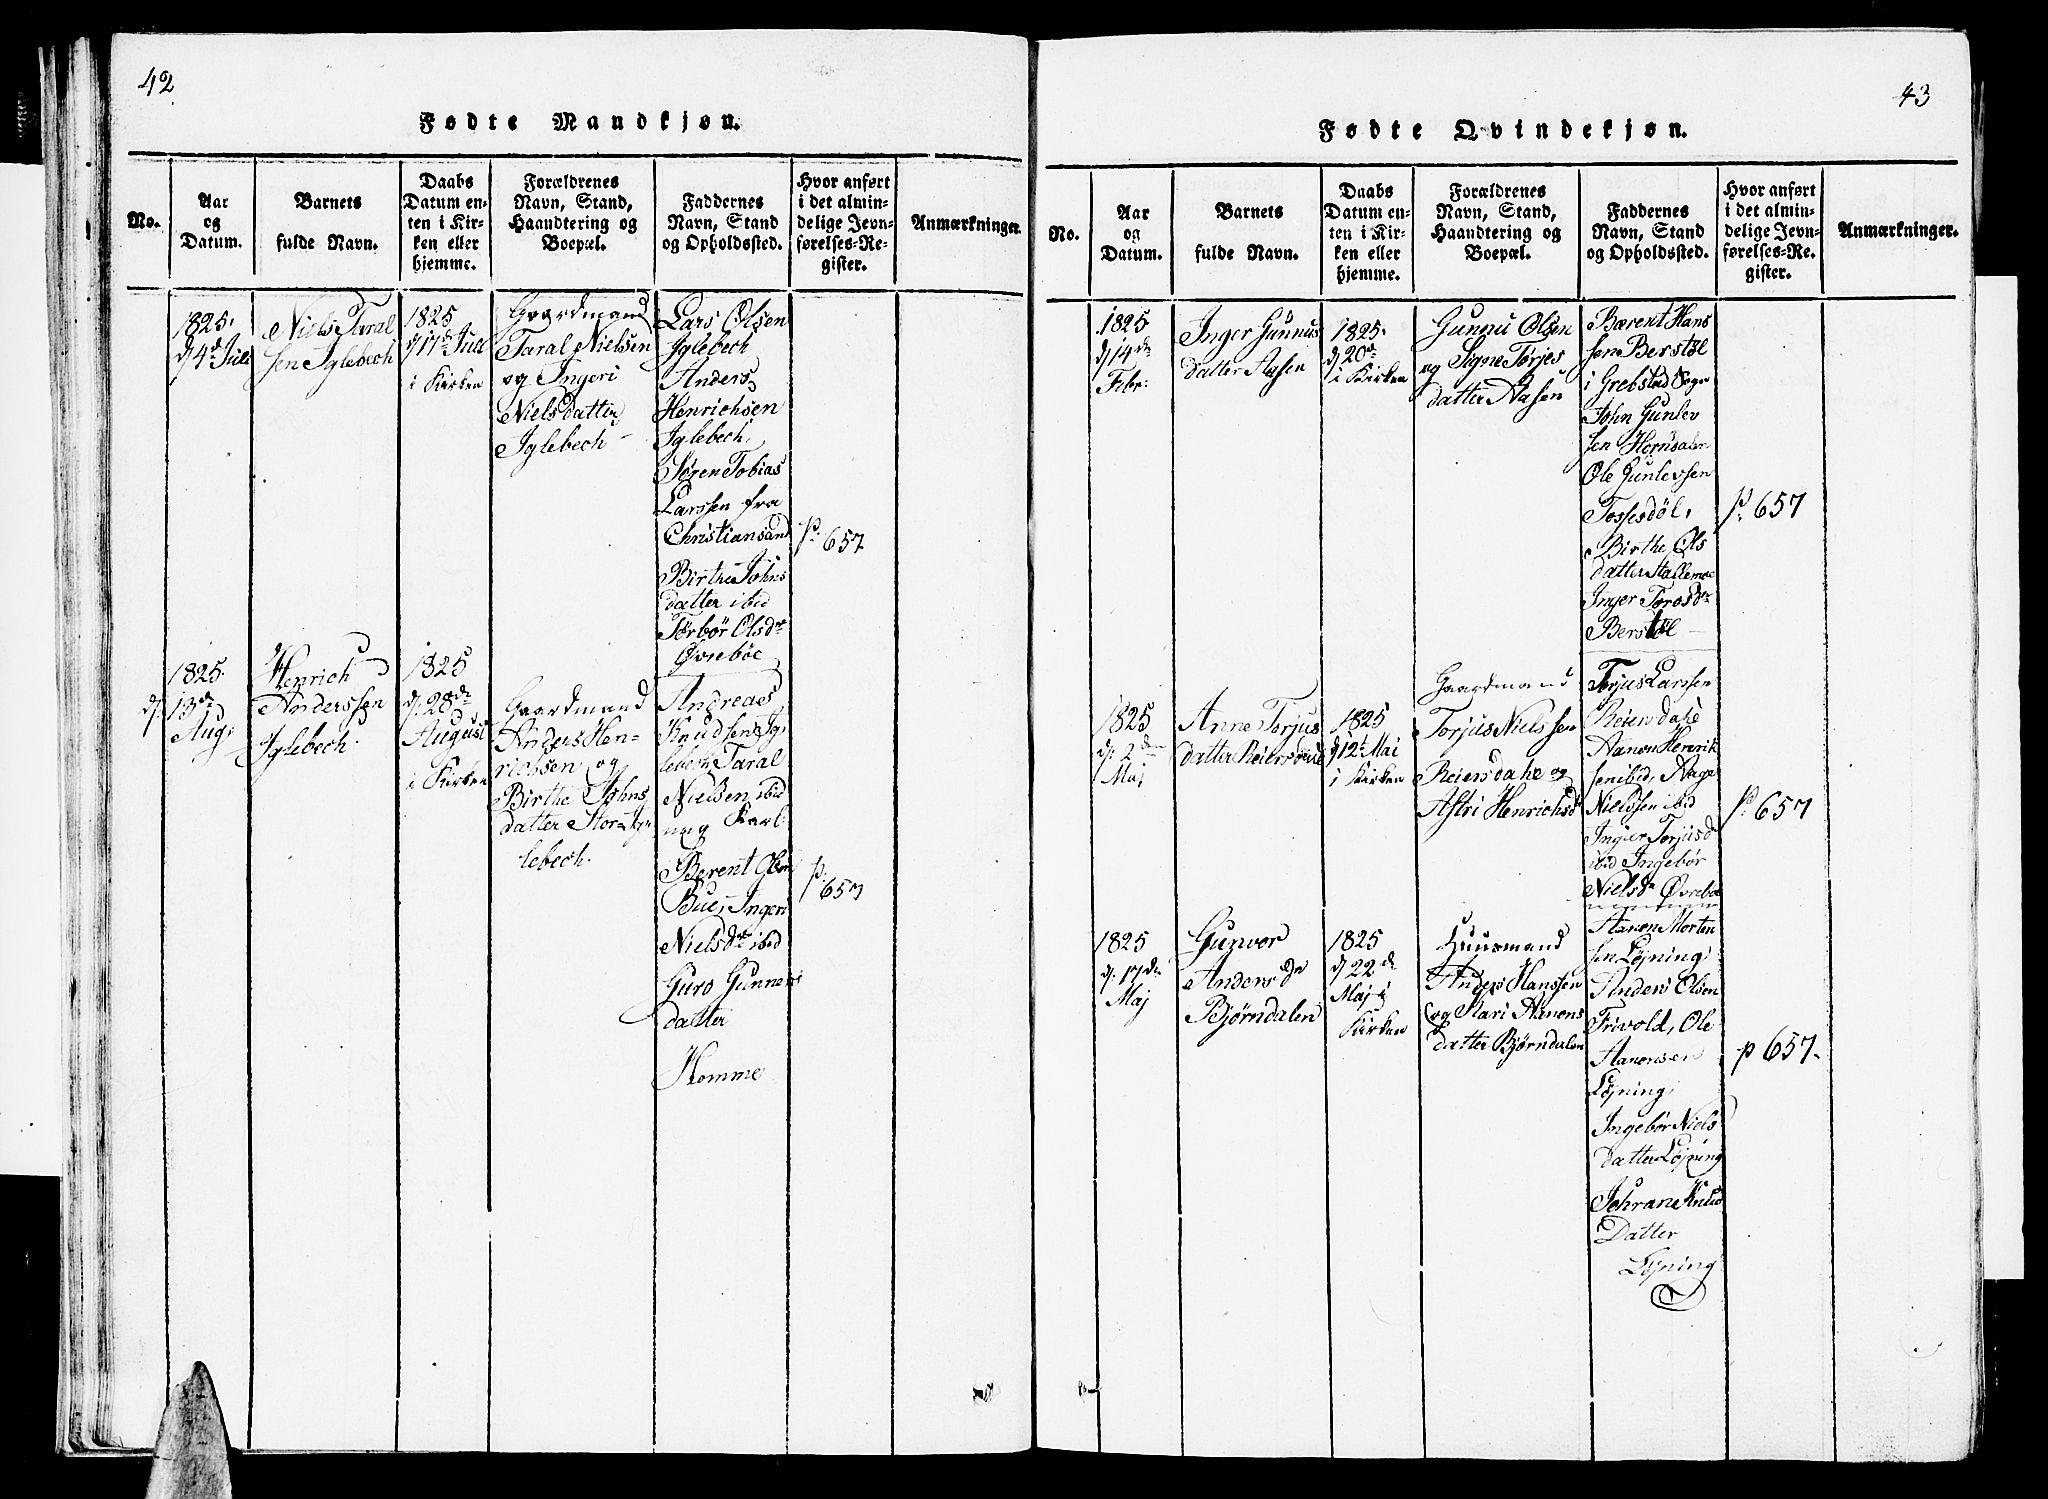 42
Fødte Mandkjøn.
No.
Aar
og
Datum.
Barnets
fulde Navn.
Daabs
Datum en-
ten i Kir-
ken eller
hjemme.
Forældrenes
Navn, Stand,
Haandtering og
Boepæl.
Faddernes
Navn, Stand
og Opholdssted.
Hvor anført
i det almin-
delige Jevn-
førelses-Re-
gister.
Anmærkninger.
1825.
d 4de Juli
Niels Taral
sen Iglebech
1825
d 17de Juli
i Kirken
Gaardmand
Taral Nielsen
og Ingeri
Nielsdatter
Iglebech
Lars Olsen
Iglebech
Anders
Henrichsen
Iglebech,
Søren Tobias
Larssen fra
Christiansand
Birthe Johns
datter ibid
Torbor Olsdr
Øvrebøe
p. 657
1825.
d. 13de
Aug:
Henrich
Anderssen
Iglebech.
1825
d. 28de
August
i Kirken
Gaardmand
Anders Hen-
richsen og
Birthe Johns
datter Stor-Ig-
lebech.
Andreas
Knudsen Ig-
lebech, Taral
Nielsen ibid
ung Karl
Berent Olsen
Bue, Ingeri
Nielsdr ibid
Guro Gunners
datter
Homme
p.
657
43
Fødte Qvindekjøn.
No.
Aar
og
Datum.
Barnets
fulde Navn.
Daabs
Datum en-
ten i Kir-
ken eller
hjemme.
Forældrenes
Navn, Stand,
Haandtering og
Boepæl.
Faddernes
Navn, Stand
og Opholdssted.
Hvor anført
i det almin-
delige Jevn-
førelses-Re-
gister.
Anmærkninger.
1825
d 14de
Febr:
Inger Gunnus
datter Aasen
1825.
d 20de
i Kirken
Gunnu Olsen
og Signe Torjes
datter Aasen
Bærent Hans
sen Berstøl
i Grebstad Sogn
John Gunlev
sen
Ole Gunlevssen
Tossesdøl,
Birthe Ols
datter Stallemoe
Inger Torosdr
Berstøl
p. 657
1825
d. 2den
Maj
Anne Torjus
datter Reiersdahl
1825
d 12te Mai
i Kirken
Gaardmand
Torjus Nielssen
Reiersdahl og
Astri Henrichsd
Torjus Larssen
Reiersdahl
Aanon Henrik
sen ibid, Aage
Nielssen ibid
Inger Torjusd
ibid Ingebor
Nielsdr Øvrebø
p. 657
1825
d. 17de
Maj
Gunvor
Andersdr
Bjørndalen
1825
d 22de
Maj i
Kirken
Huusmand
Anders Hanssen
og Kari Aanons
datter Bjørndalen
Aanon Morten
sen Løjning,
Anders Olsen
Trivold, Ole
Aanonsen
Løjning,
Ingebor Niels
datter Løjning
Jehrane Knud
Datter
Løjning
p 657.